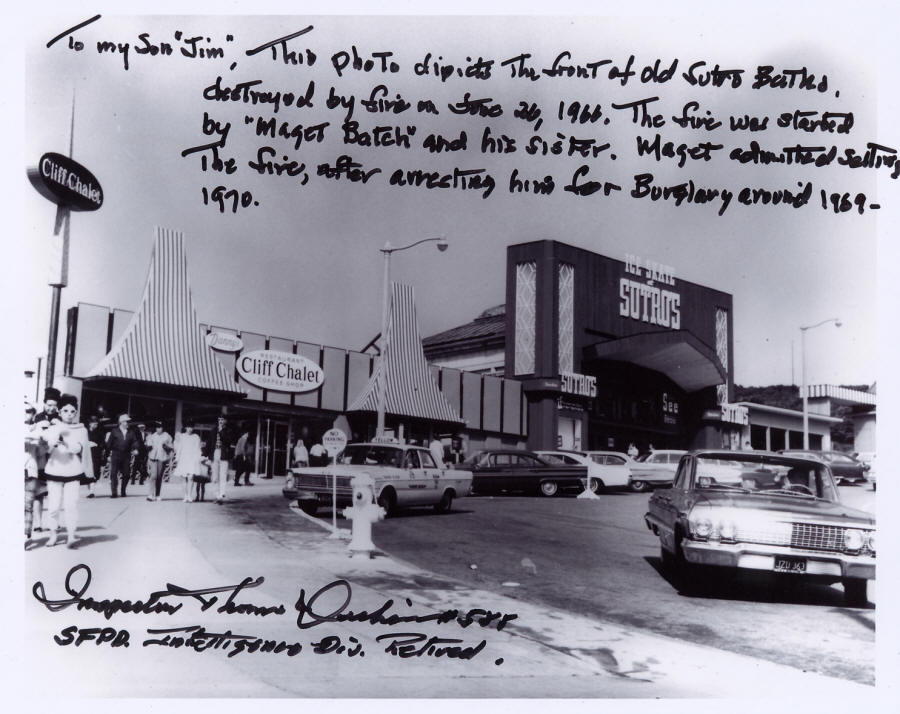 To my Son "Jim", This photo dipicts The front of old Sutro Baths.
destroyed by fire on June 26, 1966. The fire was started
by "Maget Batch" and his sister. Maget admitted setting
The fire, after arresting him for Burglary around 1969-
1970.
Cliff Chalet
ICE SKATE
SUTRO'S
Danny's
RESTAURANT
Cliff Chalet
COFFEE SHOP
SUTRO'S
See
SUTRO'S
NO
PARKING
YELLOW
JZU 363
Inspector Thomas #588
SFPD. Intelligence Div. Retired.